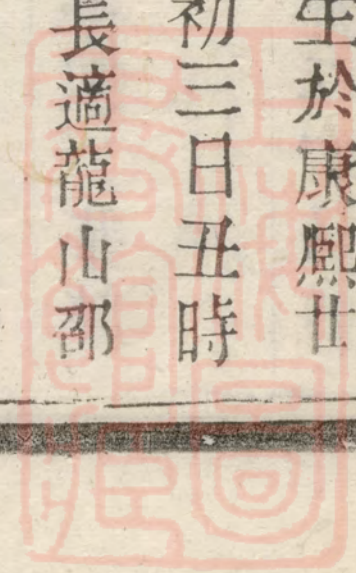 生於康熙廿
初三日丑時
長適龍山邵